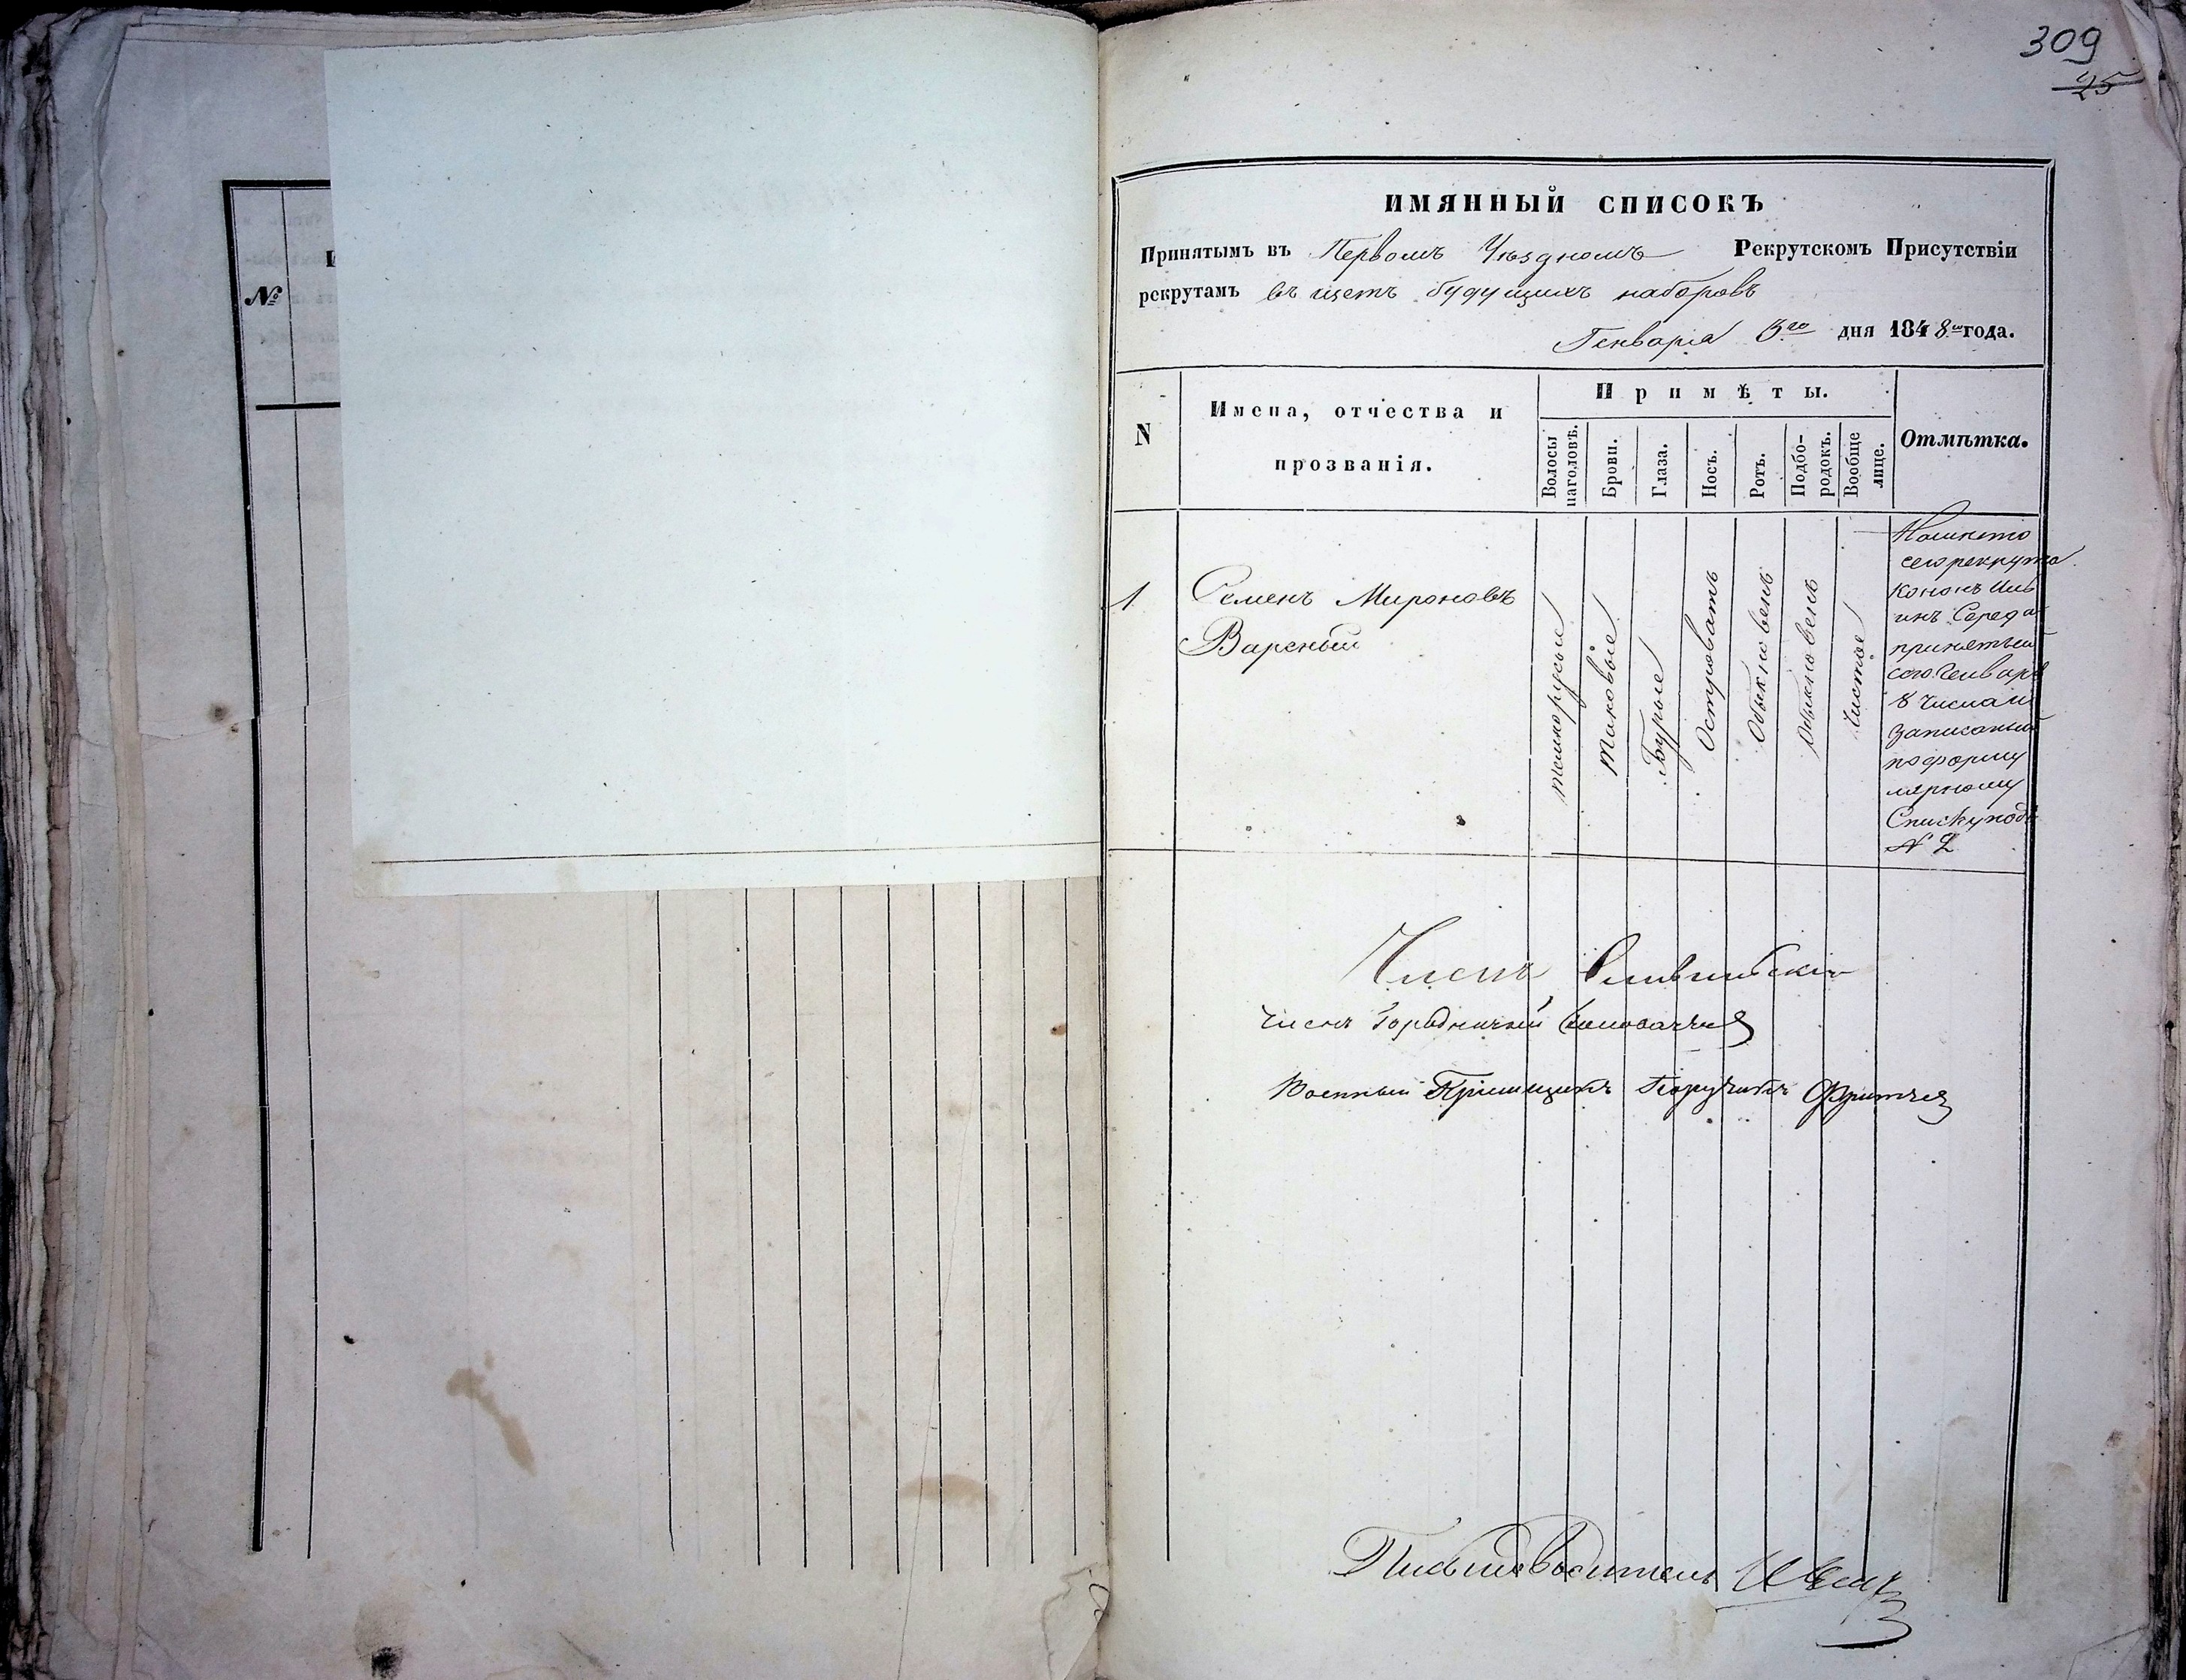 309
25
№
ИМЯННЫЙ СПИСОКЪ
Принятымъ въ Первомъ Уѣздномъ Рекрутскомъ Присутствіи
рекрутамъ въ щетъ будущихъ наборовъ
Генваря дня 1848го года.
N
Имена, отчества и
прозванія.
Примѣты.
Волосы
наголовѣ.
Брови.
Глаза.
Носъ.
Ротъ.
Подбо-
родокъ.
Вообще
лице.
Отмѣтка.
1
Семенъ Мироновъ
Вареный
темнорусые
таковые
Бурые
Островатъ
Обыкновенъ
Обыкновенъ
Чистое
сего рекрута
Кононъ Иль
инъ Середа
принятый
сего Генваря
8 числа и
записаный
по форму
лярному
Списку подъ
N 2
Членъ
Членъ Городничий
Военный Приемщикъ Поручикъ
Письмоводитель